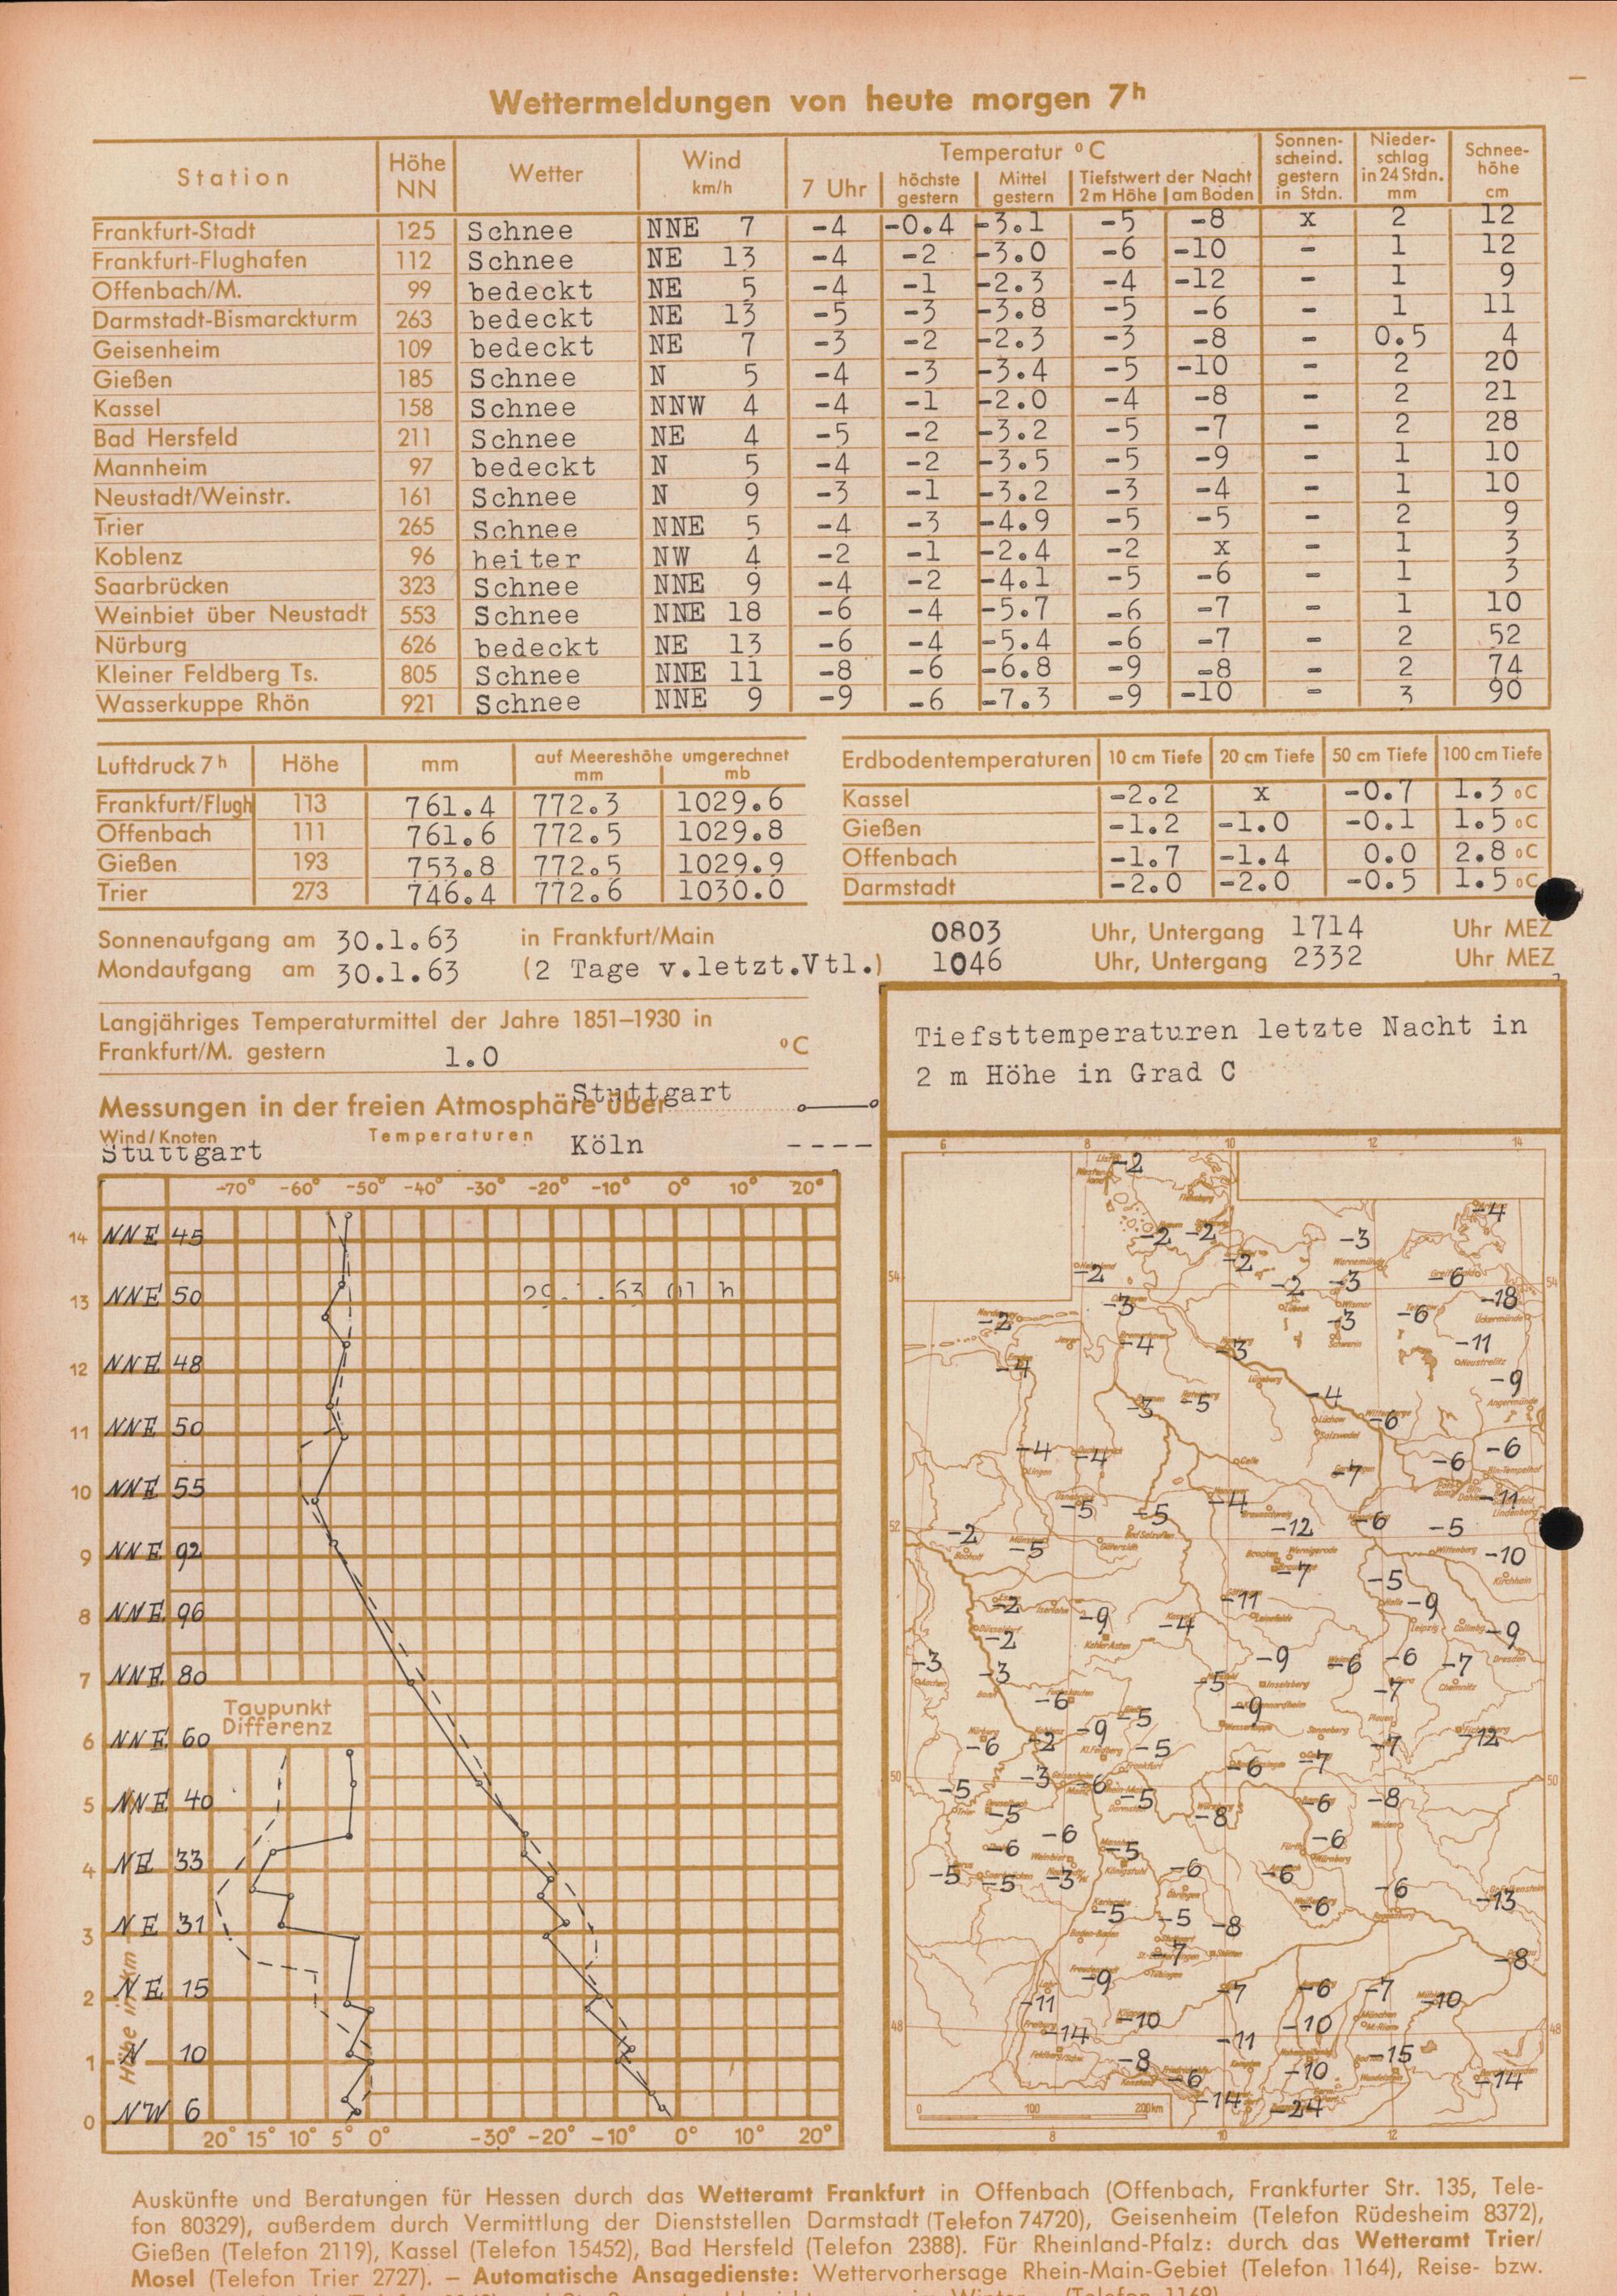 Wettermeldungen von heute morgen 7h
Station Höhe NN Wetter Wind km/h Temperatur °C Sonnen-scheind. gestern in Stdn. Nieder-schlag in 24 Stdn. mm Schnee-höhe cm
7 Uhr höchste gestern Mittel gestern Tiefstwert der Nacht 2 m Höhe am Boden
Frankfurt-Stadt 125 Schnee NNE 7 -4 -0.4 -3.1 -5 -8 x 2 12
Frankfurt-Flughafen 112 Schnee NE 13 -4 -2 -3.0 -6 -10 - 1 12
Offenbach/M. 99 bedeckt NE 5 -4 -1 -2.3 -4 -12 - 1 9
Darmstadt-Bismarckturm 263 bedeckt NE 13 -5 -3 -3.8 -5 -6 - 1 11
Geisenheim 109 bedeckt NE 7 -3 -2 -2.3 -3 -8 - 0.5 4
Gießen 185 Schnee N 5 -4 -3 -3.4 -5 -10 - 2 20
Kassel 158 Schnee NNW 4 -4 -1 -2.0 -4 -8 - 2 21
Bad Hersfeld 211 Schnee NE 4 -5 -2 -3.2 -5 -7 - 2 28
Mannheim 97 bedeckt N 5 -4 -2 -3.5 -5 -9 - 1 10
Neustadt/Weinstr. 161 Schnee N 9 -3 -1 -3.2 -3 -4 - 1 10
Trier 265 Schnee NNE 5 -4 -3 -4.9 -5 -5 - 2 9
Koblenz 96 heiter NW 4 -2 -1 -2.4 -2 x - 1 3
Saarbrücken 323 Schnee NNE 9 -4 -2 -4.1 -5 -6 - 1 3
Weinbiet über Neustadt 553 Schnee NNE 18 -6 -4 -5.7 -6 -7 - 1 10
Nürburg 626 bedeckt NE 13 -6 -4 -5.4 -6 -7 - 2 52
Kleiner Feldberg Ts. 805 Schnee NNE 11 -8 -6 -6.8 -9 -8 - 2 74
Wasserkuppe Rhön 921 Schnee NNE 9 -9 -6 -7.3 -9 -10 - 3 90
Luftdruck 7h Höhe mm auf Meereshöhe umgerechnet mm mb
Frankfurt/Flugh 113 761.4 772.3 1029.6
Offenbach 111 761.6 772.5 1029.8
Gießen 193 753.8 772.5 1029.9
Trier 273 746.4 772.6 1030.0
Erdbodentemperaturen 10 cm Tiefe 20 cm Tiefe 50 cm Tiefe 100 cm Tiefe
Kassel -2.2 x -0.7 1.3 °C
Gießen -1.2 -1.0 -0.1 1.5 °C
Offenbach -1.7 -1.4 0.0 2.8 °C
Darmstadt -2.0 -2.0 -0.5 1.5 °C
Sonnenaufgang am 30.1.63 in Frankfurt/Main 0803 Uhr, Untergang 1714 Uhr MEZ
Mondaufgang am 30.1.63 (2 Tage v.letzt.Vtl.) 1046 Uhr, Untergang 2332 Uhr MEZ
Langjähriges Temperaturmittel der Jahre 1851–1930 in
Frankfurt/M. gestern 1.0 °C
Messungen in der freien Atmosphäre über Stuttgart
Wind/Knoten Temperaturen Köln ----
Stuttgart
-70° -60° -50° -40° -30° -20° -10° 0° 10° 20°
14 NNE 45
13 NNE 50
12 NNE 48
11 NNE 50
10 NNE 55
9 NNE 92
8 NNE 96
7 NNE 80
Taupunkt
Differenz
6 NNE 60
5 NNE 40
4 NE 33
3 NE 31
2 NE 15
1 N 10
0 NW 6
Höhe in km
20° 15° 10° 5° 0° -30° -20° -10° 0° 10° 20°
Tiefsttemperaturen letzte Nacht in
2 m Höhe in Grad C
6 8 10 12 14
-2
-4
-2 -2 -3
-2 -2
-2 -3 -6
-3 -18
-2 -3 -6
-4 -3 -11
-4 -9
-3 -5 -4 -6
-4 -4 -7 -6 -6
-5 -5 -4 -11
-2 -5 -12 -6 -5 -10
-7 -5
-2 -9 -4 -11 -9 -9
-2
-3 -3 -5 -9 -6 -6 -7
-6 -9 -7
-6 -2 -9 -5 -5 -7 -12
-5 -3 -6 -5 -6 -7
-5 -8 -6 -8
-6 -6 -5 -6
-5 -5 -3 -6 -6 -6 -13
-5 -5 -8 -6
-9 -7 -8
-11 -7 -6 -7 -10
-14 -10 -11 -10 -15
-8 -6 -10 -14
-14 -24
54 52 50 48
0 100 200km
8 10 12
Auskünfte und Beratungen für Hessen durch das Wetteramt Frankfurt in Offenbach (Offenbach, Frankfurter Str. 135, Tele-
fon 80329), außerdem durch Vermittlung der Dienststellen Darmstadt (Telefon 74720), Geisenheim (Telefon Rüdesheim 8372),
Gießen (Telefon 2119), Kassel (Telefon 15452), Bad Hersfeld (Telefon 2388). Für Rheinland-Pfalz: durch das Wetteramt Trier/
Mosel (Telefon Trier 2727). — Automatische Ansagedienste: Wettervorhersage Rhein-Main-Gebiet (Telefon 1164), Reise- bzw.